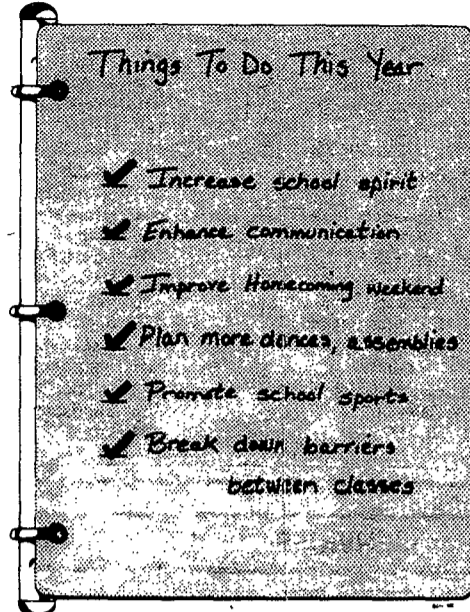 Things To Do This Year
Increase school spirit
Enhance communication
Improve Homecoming weekend
Plan more dances, assemblies
Promote school sports
Break down barriers
between classes